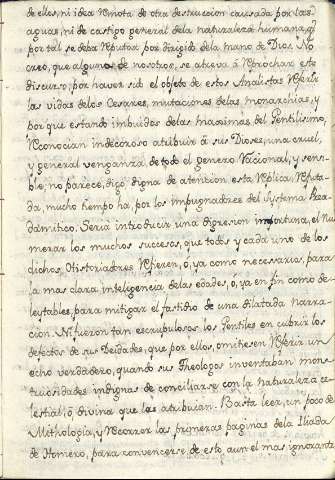 de ellos, ni idea remota de otra destruccion causada por las
aguas, ni de castigo general dela naturaleza humana, q̃
por tal se deba reputar por dirigido dela mano de Dios. No
creo, que alguno de nosotros, se atreva â reprochar este
discurso, por haver sido el objeto de estos Analistas referir
las vidas delos Cesares, mutaciones delas monarchias, y
por que estando imbuidos delas maximas del Gentilismo,
reconocian indecoroso atribuir â sus Dioses, una cruel,
y general venganza de todo el genero racional, y sensi-
ble, no parece, digo, digna de atencion esta replica, refuta-
da, mucho tiempo ha, por los impugnadores del systema Prea-
damitico. Seria introducir una digresion importuna, el nu-
merar los muchos sucesos, que todos y cada uno de los
dichos Historiadores refieren, ó, ya como necesarios, para
la mas clara inteligencia delas edades, ó, ya en fin como de-
leytables, para mitigar el fastidio de una dilatada narra-
cion. Ni fueron tan escrupulosos los Gentiles en cubrir los
defectos de sus Deidades, que por ellos, omitiesen referir un
echo verdadero, quando sus Theologos inventaban mons-
truosidades indignas de conciliarse con la naturaleza ce-
lestial, ó divina que les atribuian. Basta leer, un poco de
Mithologia, y recorrer las primeras paginas dela Iliada
de Homero, para convencerse de esto, aun el mas ignorante